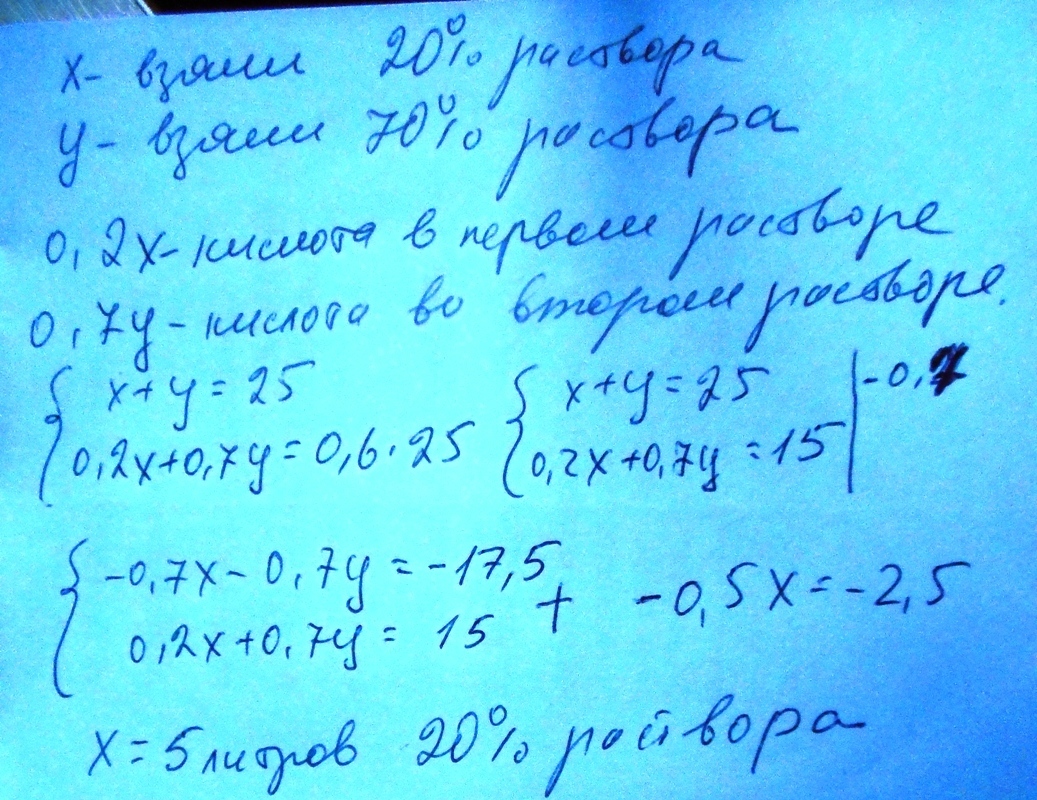 х - взяли 20% раствора
у - взяли 70% раствора
0,2х - кислота в первом растворе
0,7у - кислота во втором растворе.
{ х+у=25
0,2х+0,7у=0,6·25
{ х+у=25 | -0,7
0,2х+0,7у=15
{ -0,7х-0,7у=-17,5
0,2х+0,7у= 15
+ -0,5х=-2,5
х=5 литров 20% раствора